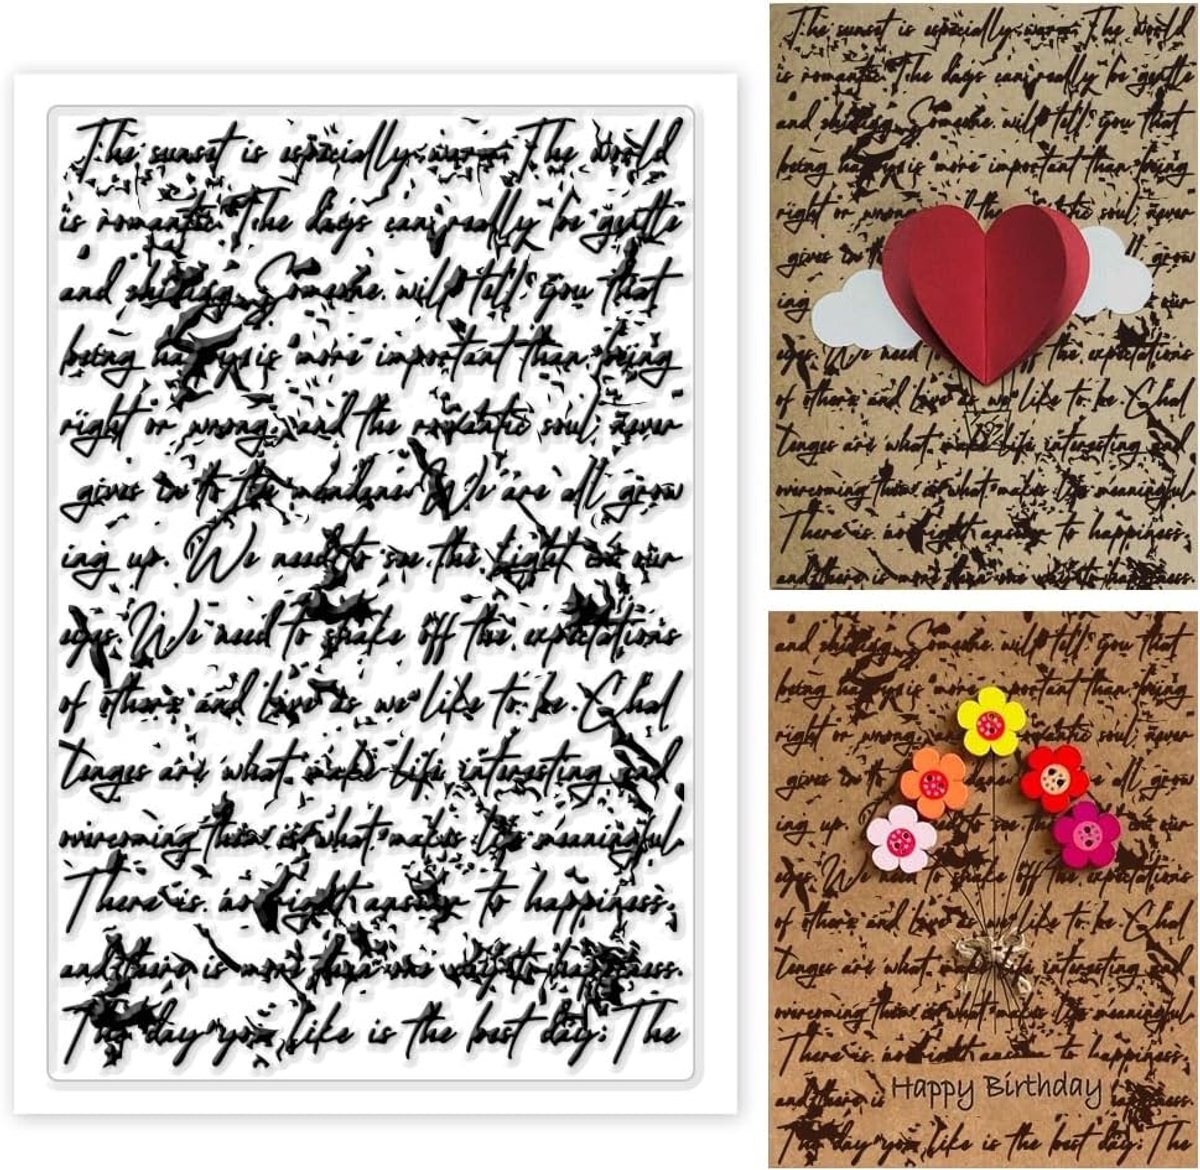 The sunset is especially warm The world
is romantic The days can really be gentle
and shining Someone will tell you that
being happy is more important than being
right or wrong, and the romantic soul never
gives in to the mundane We are all grow
ing up. We need to see the light in our
eyes. We need to shake off the expectations
of others and live as we like to be Chal
lenges are what make life interesting and
overcoming them is what makes life meaningful.
There is no right answer to happiness.
and there is more than one way to happiness.
The day you like is the best day. The
The sunset is especially warm The world
is romantic The days can really be gentle
and shining Someone will tell you that
being happy is more important than being
right or wrong the soul never
gives in to grow
ing our
eyes. We need to off the expectations
of others and live as we like to be Chal
lenges are what make life interesting and
overcoming them is what makes life meaningful
There is no right answer to happiness.
and there is more than one way to happiness.
and shining Someone will tell you that
being happy is more important than being
right or wrong, and romantic soul never
gives in to all grow
ing up. need to see our
eyes. We need to shake off the expectations
of others and live as we like to be Chal
lenges are what make life interesting and
overcoming them is what makes life meaningful
There is no right answer to happiness.
Happy Birthday
and there is happiness.
The day you like is the best day. The